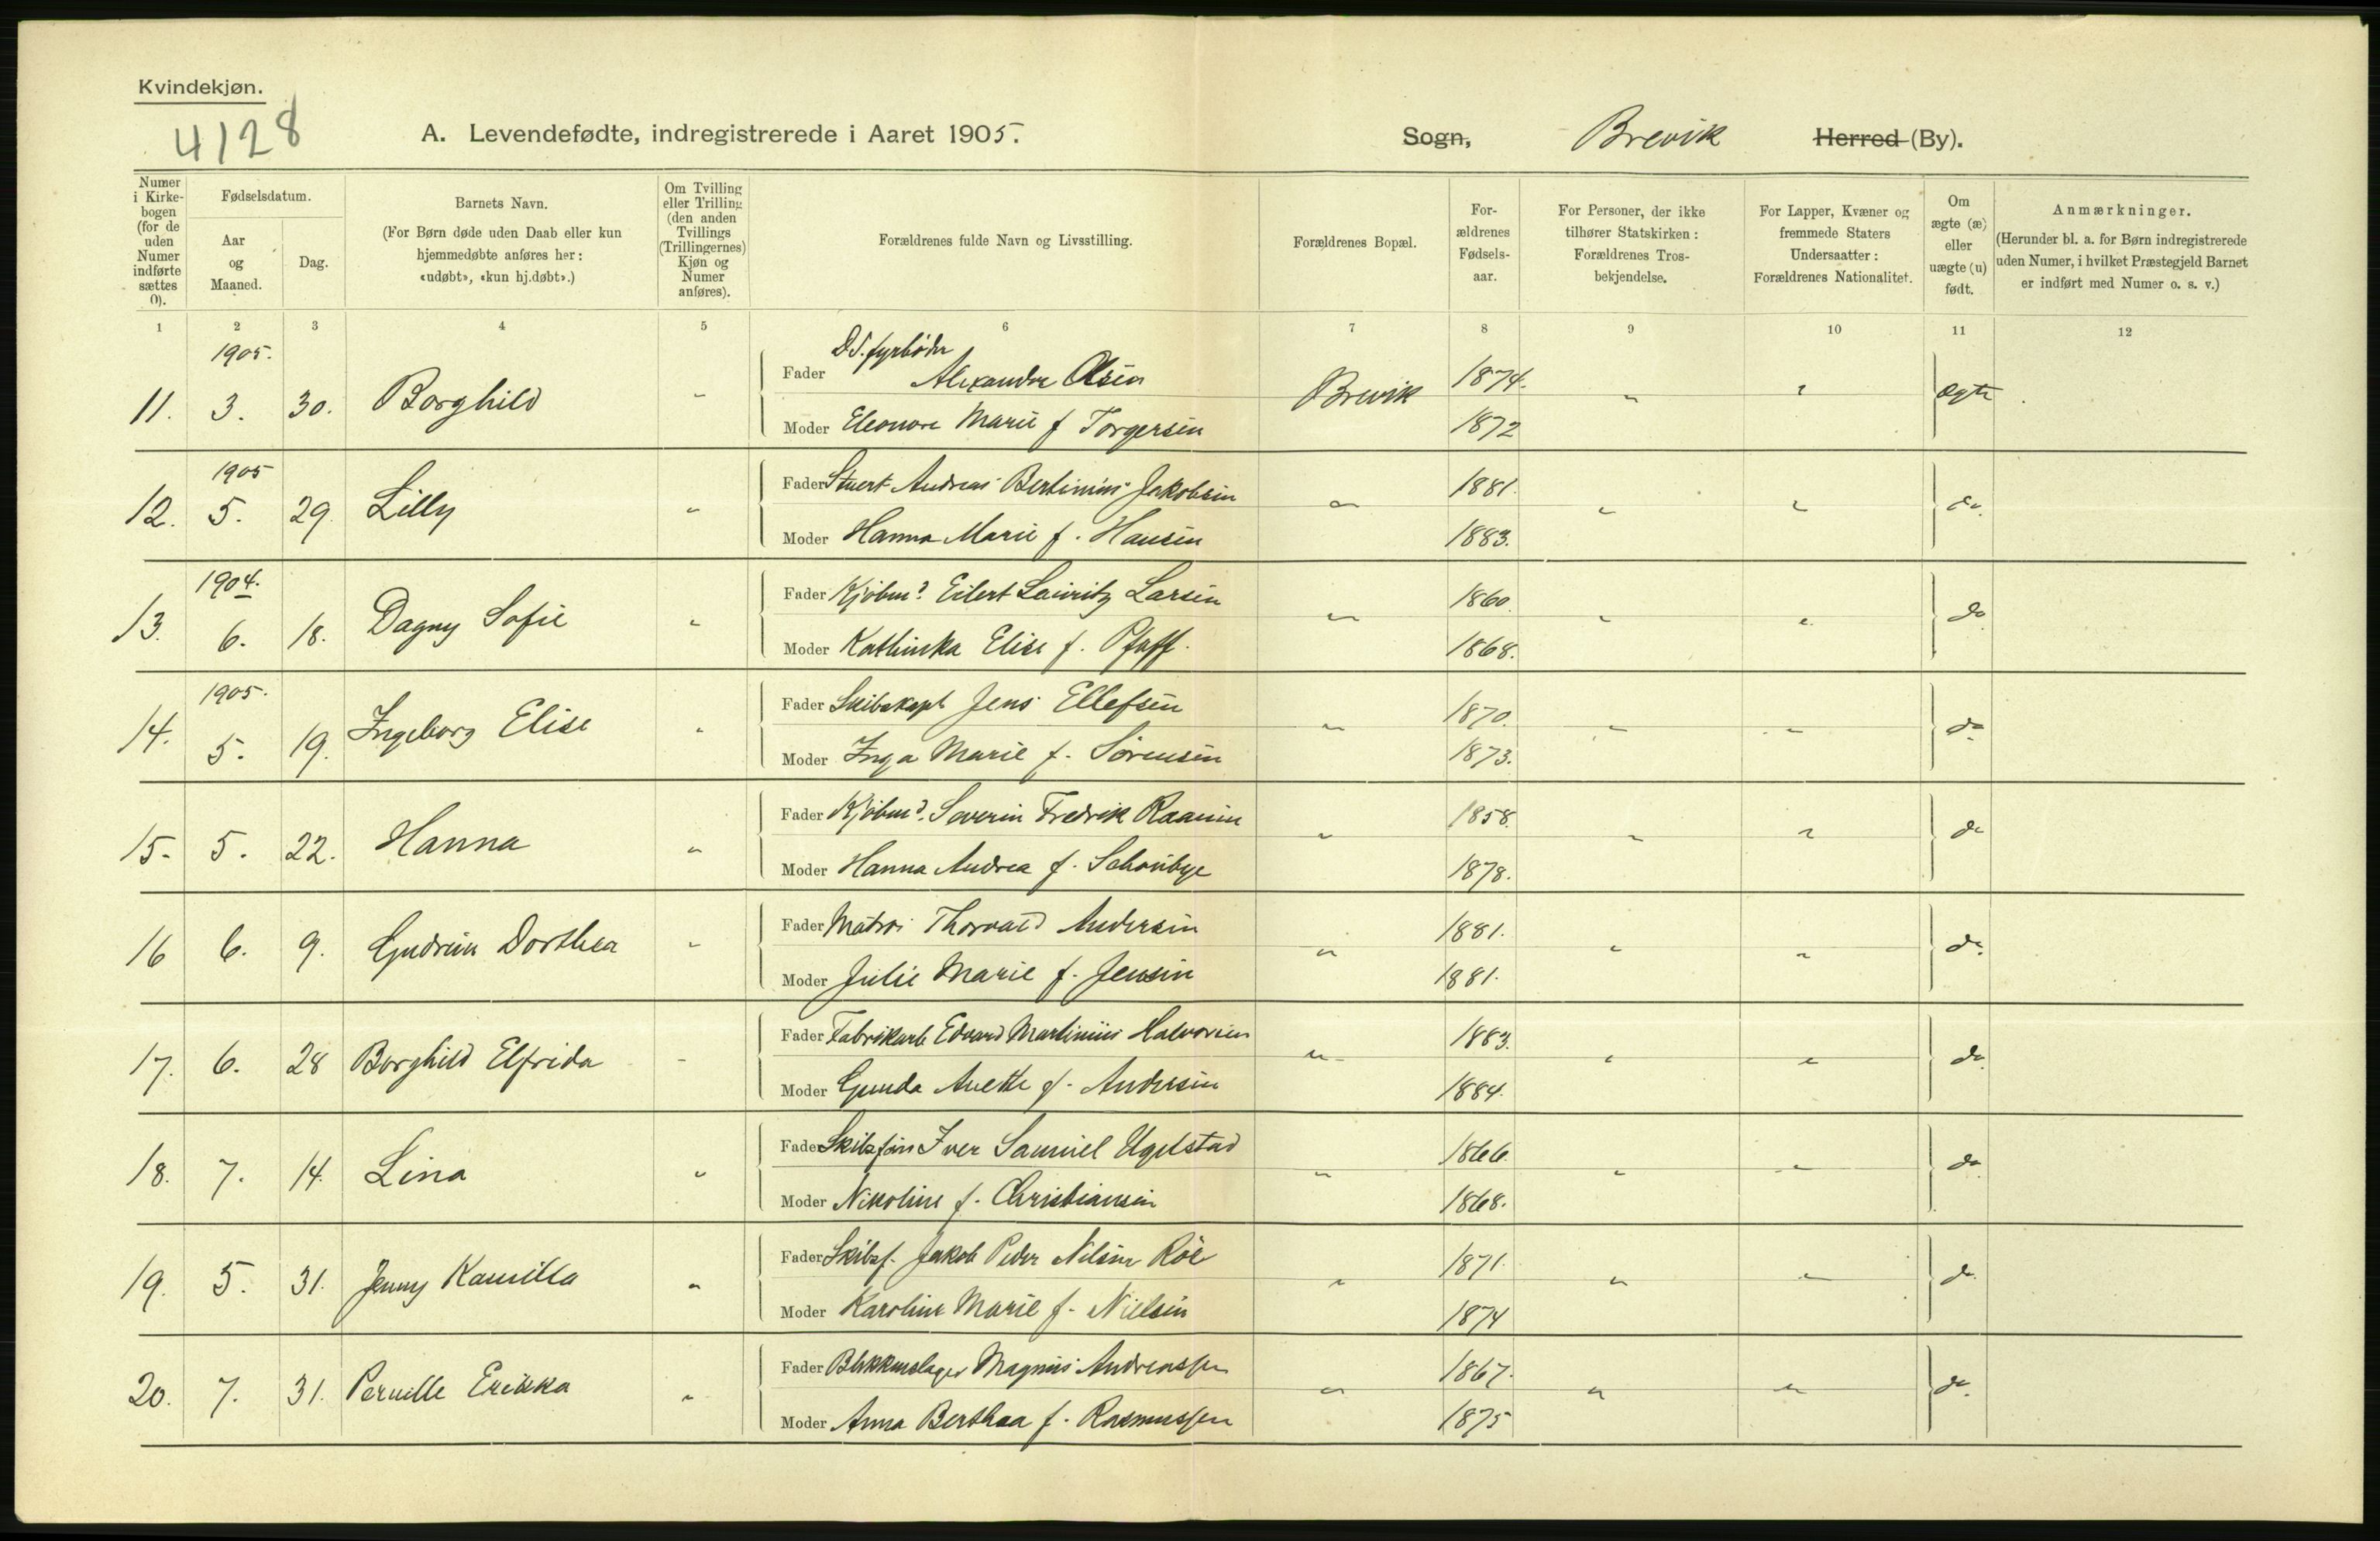 Kvindekjøn.
4128
A. Levendefødte, indregistrerede i Aaret 1905.
Sogn, Brevik Herred (By).
Numer i Kirkebogen (for de uden Numer indførte sættes 0).
Fødselsdatum.
Aar og Maaned.
Dag.
Barnets Navn.
(For Børn døde uden Daab eller kun hjemmedøbte anføres her: «udøbt», «kun hj.døbt».)
Om Tvilling eller Trilling (den anden Tvillings (Trillingernes) Kjøn og Numer anføres).
Forældrenes fulde Navn og Livsstilling.
Forældrenes Bopæl.
For-ældrenes Fødsels-aar.
For Personer, der ikke tilhører Statskirken: Forældrenes Tros-bekjendelse.
For Lapper, Kvæner og fremmede Staters Undersaatter: Forældrenes Nationalitet.
Om ægte (æ) eller uægte (u) født.
Anmærkninger.
(Herunder bl. a. for Børn indregistrerede uden Numer, i hvilket Præstegjeld Barnet er indført med Numer o. s. v.)
1 2 3 4 5 6 7 8 9 10 11 12
1905. D.S. fyrbøder
11. 3. 30. Borghild " Fader Alexander Olsen Brevik 1874. " " ægte
Moder Eleonore Marie f Torgersen 1872
1905
12. 5. 29. Lilly " Fader Stuert Andreas Bertinius Jakobsen " 1881. " " do.
Moder Hanna Marie f. Hansen 1883.
1904.
13. 6. 18. Dagny Sofie " Fader Kjøbmd Eilert Lauritz Larsen " 1860. " " do
Moder Kathinka Elise f. Pfaff. 1868.
1905.
14. 5. 19. Ingeborg Elise " Fader Skibskapt Jens Ellefsen " 1870. " " do
Moder Inga Marie f. Sørensen 1873.
15. 5. 22. Hanna " Fader Kjøbmd. Severin Fredrik Raanum " 1858. " " do
Moder Hanna Andrea f. Schønbye 1878.
16 6. 9. Gudrun Dorthea " Fader Matros Thorvald Andersen " 1881. " " do.
Moder Julie Marie f. Jensen 1881.
17. 6. 28 Borghild Elfrida " Fader Fabrikarb Edvard Martinius Halvorsen " 1883. " " do
Moder Gunda Anette f. Andersen 1884.
18. 7. 14. Lina " Fader Skibsfør Iver Samuel Ugelstad " 1866. " " do
Moder Nikoline f. Christiansen 1868.
19. 5. 31. Jenny Kamilla " Fader Skibsf. Jakob Peder Nilsen Röe " 1871. " " do.
Moder Karoline Marie f. Nielsen 1874
20. 7. 31. Pernille Erikka " Fader Blikkenslager Magnus Andreassen " 1867. " " do.
Moder Anna Berthea f. Rasmussen 1875